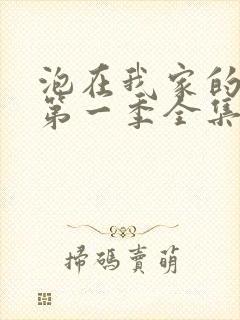 泡在我家的
第一季全集
掃碼賣萌